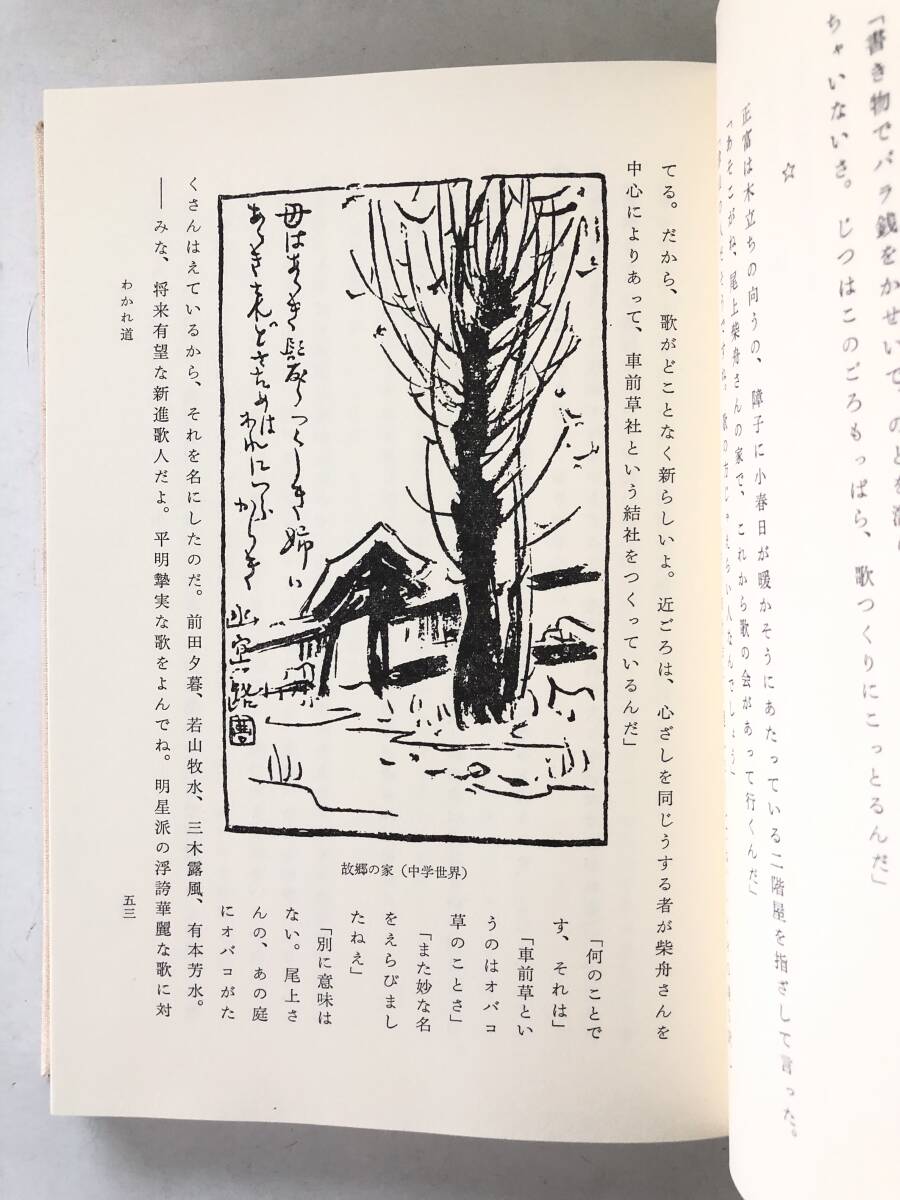 「書き物でバラ銭をかせいで、のどを
ちゃいないさ。じつはこのごろもっぱら、歌つくりにこっとるんだ」
☆
正富は木立ちの向うの、障子に小春日が暖かそうにあたっている二階屋を指ざして言った。
「あそこがね、尾上柴舟さんの家で、これから歌の会があって行くんだ」
てる。だから、歌がどことなく新らしいよ。近ごろは、心ざしを同じうする者が柴舟さんを
中心によりあって、車前草社という結社をつくっているんだ」
「何のことで
す、それは」
「車前草とい
うのはオバコ
草のことさ」
「また妙な名
をえらびまし
たねえ」
「別に意味は
ない。尾上さ
んの、あの庭
にオバコがた
故郷の家（中学世界）
くさんはえているから、それを名にしたのだ。前田夕暮、若山牧水、三木露風、有本芳水。
――みな、将来有望な新進歌人だよ。平明摯実な歌をよんでね。明星派の浮誇華麗な歌に対
わかれ道
五三